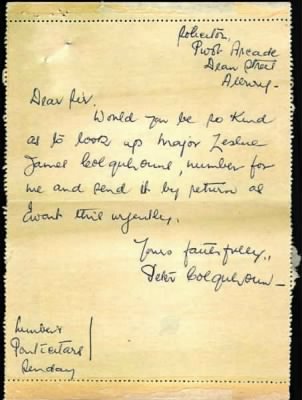 Solicitor,
Pwot Arcade
Dean Street
Albury_
Dear Sir.
Would you be so kind
as to look up Major Leslie
James Colquhouns, number for
me and send it by return as
I want this urgently.
Yours faithfully,,
Peter Colquhoun_
Sunday